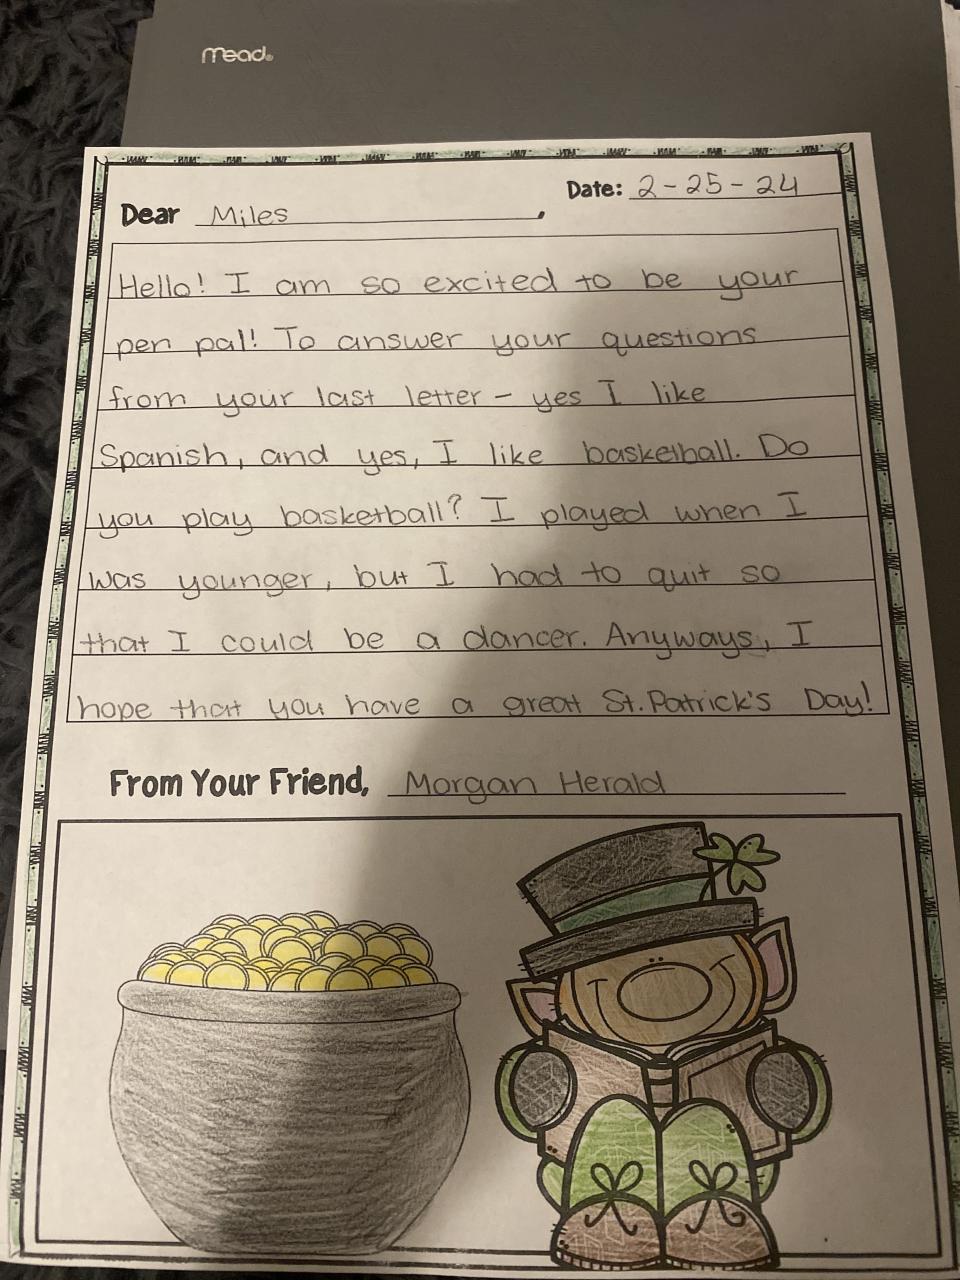 mead®
Date: 2-25-24
Dear Miles,
Hello! I am so excited to be your
pen pal! To answer your questions
from your last letter - yes I like
Spanish, and yes, I like basketball. Do
you play basketball? I played when I
was younger, but I had to quit so
that I could be a dancer. Anyways, I
hope that you have a great St. Patrick's Day!
From Your Friend, Morgan Herald